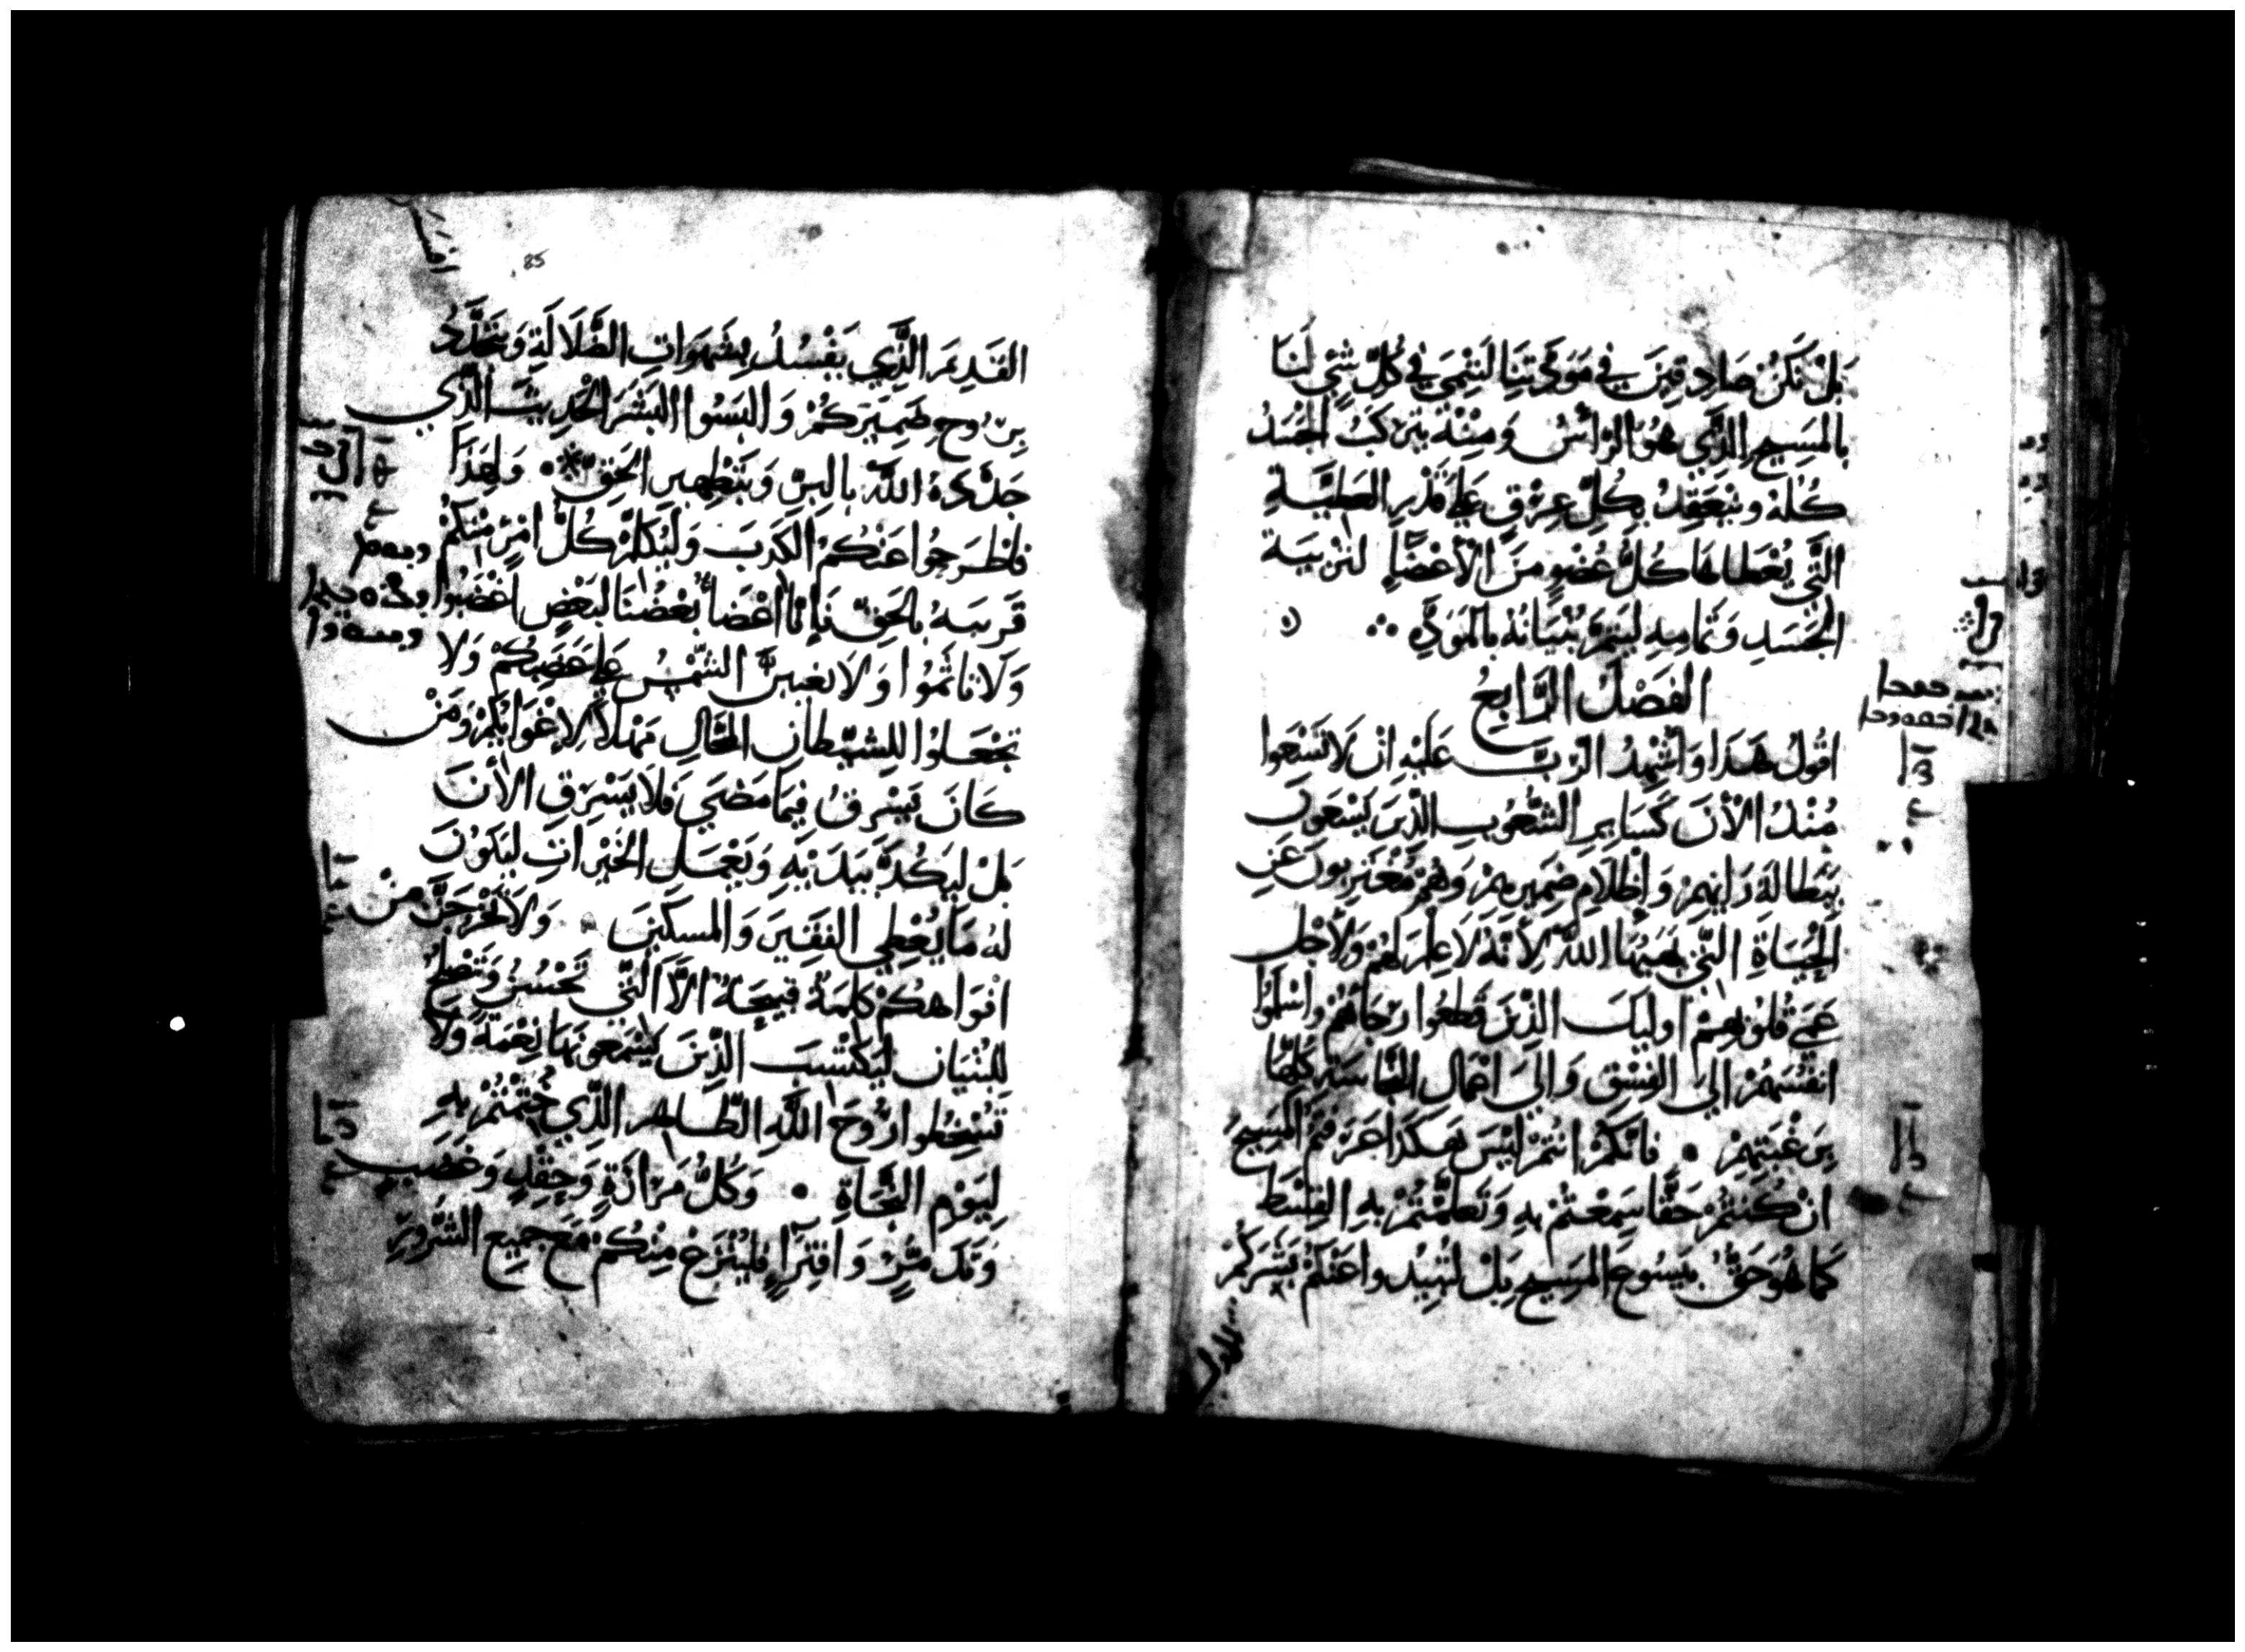 بَلْ نَكُنْ صَادِقِينَ فِي مَوَدَّتِنَا لِنَنْمِيَ فِي كُلِّ شَيْءٍ لَنَا
بِالْمَسِيحِ الَّذِي هُوَ الرَّأْسُ وَمِنْهُ يَتَرَكَّبُ الْجَسَدُ
كُلُّهُ وَيَنْعَقِدُ بِكُلِّ عِرْقٍ عَلَى قَدْرِ الْعَطِيَّةِ
الَّتِي يُعْطَاهَا كُلُّ عُضْوٍ مِنَ الْأَعْضَاءِ لِتَرْبِيَةِ
الْجَسَدِ وَتَمَامِهِ لِيَتِمَّ بُنْيَانُهُ بِالْمَوَدَّةِ
الفَصْلُ الرَّابِعُ
اقُولُ هَذَا وَاُشْهِدُ الرَّبَّ عَلَيْهِ انْ لَا تَسْعَوا
مُنْذُ الْأَنَ كَسَايِرِ الشُّعُوبِ الَّذِينَ يَسْعَونَ
بِبَطَالَةِ رَايِهِمْ وَاظْلَامِ ضَمِيرِهِمْ وَهُمْ مُغْتَرِبُونَ عَنِ
الْحَيَاةِ الَّتِي يَهَبُهَا اللَّهُ لِأَنَّهُ لَا عِلْمَ لَهُمْ وَلِأَجْلِ
عَمَى قُلُوبِهِمْ اوليَكَ الَّذِينَ قَطَعُوا رَجَاهُمْ وَاسْلَمُوا
انْفُسَهُمْ الَى الفِسْقِ وَالَى اعْمَالِ النَّجَاسَةِ كُلِّهَا
بِرَغْبَتِهِمْ • فَانَّكُمْ انْتُمْ لَيْسَ هَكَذَا عَرَفْتُمْ الْمَسِيحَ
انْ كُنْتُمْ حَقًّا سَمِعْتُمْ بِهِ وَتَعَلَّمْتُمْ بِهِ القِسْطَ
كَمَا هُوَ حَقٌّ بِيَسُوعَ الْمَسِيحِ بَلْ لِتُبِيدُوا عَنْكُمْ بَشَرَكُمْ
الاول
85
القَدِيمَ الَّذِي يَفْسُدُ بِشَهَوَاتِ الضَّلَالَةِ وَيَتَجَدَّدُ
بِرُوحِ ضَمِيرِكُمْ وَالْبَسُوا الْبَشَرَ الْحَدِيثَ الَّذِي
جَدَّدَهُ اللَّهُ بِالبِرِّ وَبِتَطْهِيرِ الْحَقِّ وَلِهَذَا
فَاطْرَحُوا عَنْكُمُ الْكَذِبَ وَلْيُكَلِّمْ كُلُّ امْرِئٍ مِنْكُمْ
قَرِيبَهُ بِالْحَقِّ فَإِنَّا اعْضَاءُ بَعْضُنَا لِبَعْضٍ اغْضَبُوا
وَلَا تَاثَمُوا وَلَا تَغِيبَنَّ الشَّمْسُ عَلَى غَضَبِكُمْ وَلَا
تَجْعَلُوا لِلشَّيْطَانِ الْمَحَّالِ مَهْلًا لِإِغْوَايِكُمْ وَمَنْ
كَانَ يَسْرِقُ فِيمَا مَضَى فَلَا يَسْرِقِ الْأَنَ
بَلْ لِيَكُدَّ بِيَدَيْهِ وَيَعْمَلِ الْخَيْرَاتِ لِيَكُونَ
لَهُ مَا يُعْطِي الْفَقِيرَ وَالْمَسْكِينَ وَلَا تَخْرُجَنَّ مِنْ
افْوَاهِكُمْ كَلِمَةٌ قَبِيحَةٌ الَّا الَّتِي تَحْسُنُ وَتَصْلُحُ
لِلْبُنْيَانِ لِيَكْتَسِبَ الَّذِينَ يَسْمَعُونَهَا نِعْمَةً وَلَا
تُسْخِطُوا رُوحَ اللَّهِ الطَّاهِرِ الَّذِي خُتِمْتُمْ بِهِ
لِيَوْمِ النَّجَاةِ • وَكُلُّ مَرَارَةٍ وَحِقْدٍ وَغَضَبٍ
وَتَذَمُّرٍ وَافْتِرَاءٍ فَلْيُنْزَعْ مِنْكُمْ مَعَ جَمِيعِ الشُّرُورِ